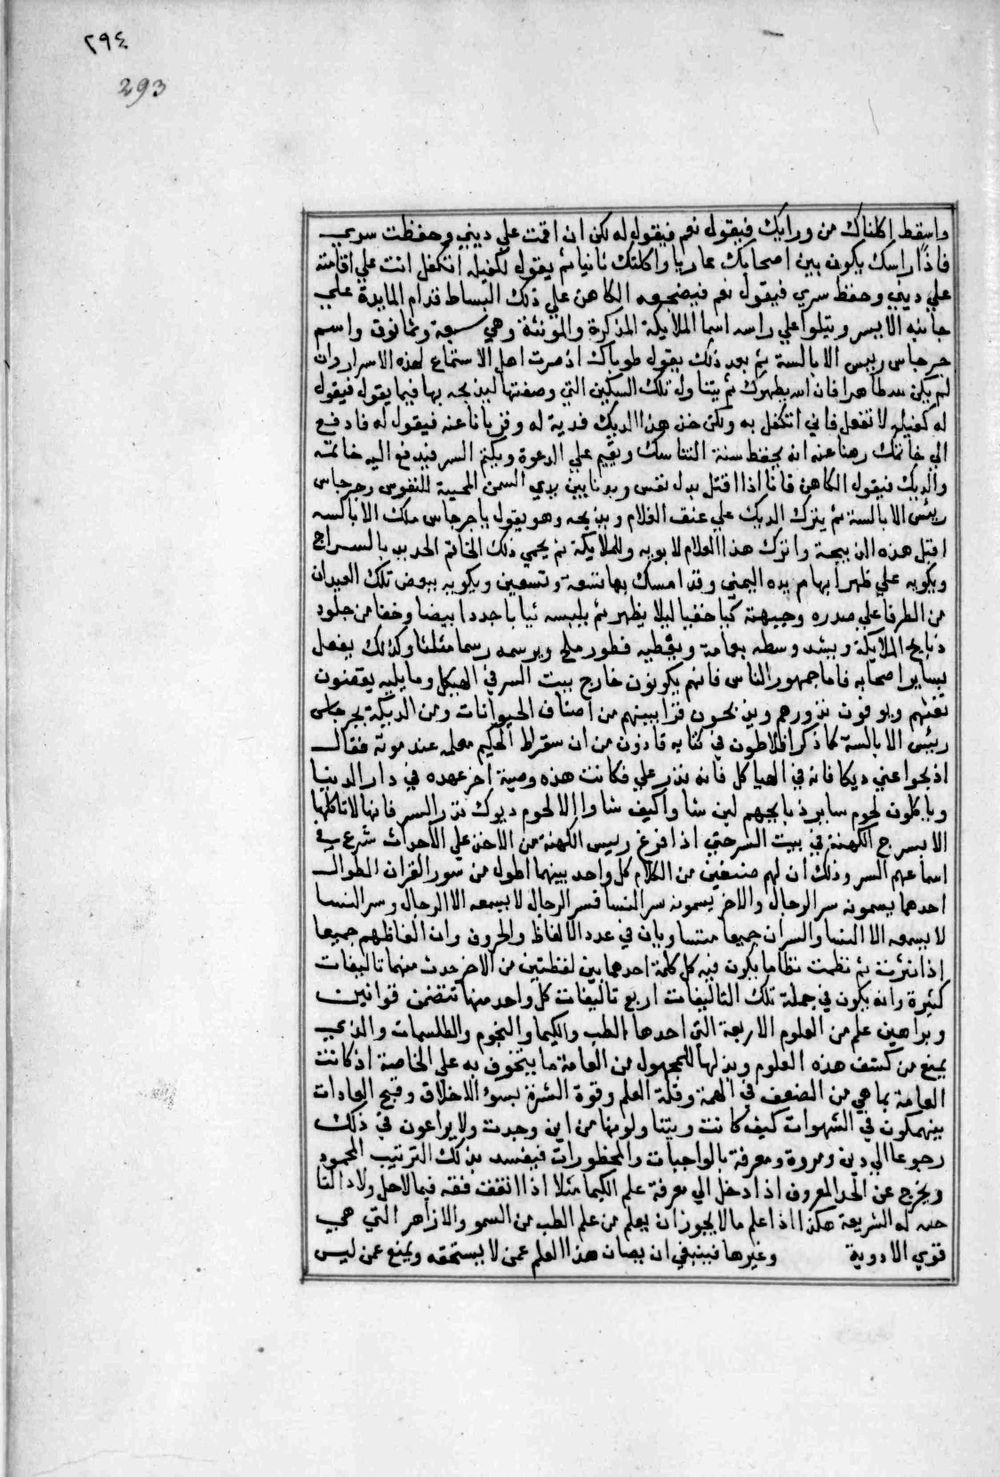 ٢٩٤
293
واسقط اكلناك من ورايك فيقول نعم فيقول له لكن ان اقمت علي ديني وحفظت سري
فاذا راسك يكون بين اصحابك عاريا واكلتك ثانيا ثم يقول لكفيله اتكفل انت علي اقامته
علي ديني وحفظ سري فيقول نعم فيضجعه الكاهن علي ذلك البساط قدام المايدة علي
جانبه الايسر ويتلوا علي راسه اسما الملايكة المذكرة والمونثة وهي سبعة وثمانون واسم
جرجاس رييس الابالسة ثم بعد ذلك يقول طوباك اذ صرت اهل الاستماع لهذه الاسرار وان
لم يكن طاهرا فان الله يطهرك ثم يتناول تلك السكين التي وصفتها ليذبحه بها فيما يقول فيقول
له كفيله لا تفعل فاني اتكفل به ولكن خذ هذا الديك فدية له وقربانا عنه فيقول له فادفع
الي خاتمك رهنا عنه انه يحفظ سنة التناسك ويقيم علي الدعوة ويكتم السر فيدفع اليه خاتمه
والديك فيقول الكاهن فانا اذا اقتل بدل نفس وبدنا بين يدي السمن المحيية للنفوس وجرجاس
رييس الابالسة ثم يترك الديك علي عنق الغلام ويذبحه وهو يقول يا جرجاس ملك الابالسه
اقبل هذه الذبيحة واترك هذا الغلام لابويه وللملايكة ثم يحمي ذلك الخاتم الحديد بالسراج
ويكويه علي ظهر ابهام يده اليمني وقد امسك بها تسعة وتسعين ويكويه ببعض تلك العيدان
من الطرفا علي صدره وجبهته كيا خفيا ليلا يظهر ثم يلبسه ثيابا جددا بيضا وخفا من جلود
ذبايح الملايكة ويشد وسطه بعمامة ويعطيه فطور ملح ويرسمه رسما مثلثا وكذلك يفعل
بساير اصحابه فاما جمهور الناس فانهم يكونون خارج بيت السر في الهيكل وما يليه يقضون
تفثهم ويوفون نذورهم ويذبحون قرابينهم من اصناف الحيوانات ومن الديكة لجرجاس
رييس الابالسة كما ذكر افلاطون في كتابه فادون من ان سقراط الحكيم معلمه عند موته فقال
اذبحوا عني ديكا فانه في الهياكل فانه نذر علي فكانت هذه وصية اخر عهده في دار الدنيا
وياكلون لحوم ساير ذبايحهم اين شاوا كيف شاوا الا لحوم ديوك نذر السر فانها لا تاكلها
الا الكهنة في بيت السر حتي اذا فرغ رييس الكهنة من الاخذ علي الاحداث شرع في
اسماعهم السر وذلك ان لهم صنفين من الكلام كل واحد بينهما اطول من سور القران الطوال
احدهما يسمونه سر الرجال والاخر يسمونه سر النسا فسر الرجال لا يسمعه الا الرجال وسر النسا
لا يسمعه الا النسا والسران جميعا متساويان في عدد الالفاظ والحروف وان الفاظهم جميعا
اذا نثرت ثم نظمت نظاما يكون فيه كل كلمة احدهما بين لفظتين من الاخر حدث منهما تاليفات
كثيرة وانه يكون في جملة تلك التاليفات اربع تاليفات كل واحد منها تتضمن قوانين
وبراهين علم من العلوم الاربعة التي احدها الطب والكيما والنجوم والطلسمات والذي
يمنع من كشف هذه العلوم وبذلها للجمهول من العامة ما يتخوف به علي الخاصة اذ كانت
العامة بما هي من الضعف في الهمة وقلة العلم وقوة الشره بسوء الاخلاق وقبح العادات
ينهمكون في الشهوات كيف كانت ويتناولونها من اين وجدت ولا يراعون في ذلك
رجوعا الي دين ومروة ومعرفة بالواجبات والمحظورات فيفسد بذلك الترتيب المحمود
ويخرج عن الحد المعروف اذا دخل الي معرفة علم الكيما مثلا اذا انفقت فقه فيما لاحل ولا
له الشريعة هكذا اذا علم ما لا يجوز ان يعلم من علم الطب من السمو والازاهر التي هي
قوي الادوية وغيرها فينبغي ان يصان هذا العلم عمن لا يستحقه ويمنع عمن ليس